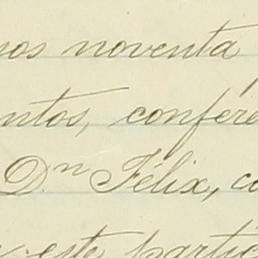 sos noventa
ntos, confere
Dn Félix, co
este partic